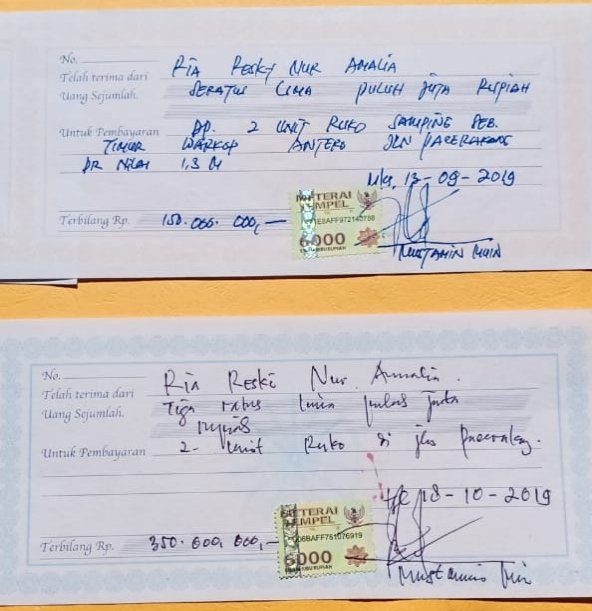 No.
Telah terima dari RIA RESKY NUR AMALIA
Uang Sejumlah. SERATUS LIMA PULUH JUTA RUPIAH
Untuk Pembayaran DP. 2 UNIT RUKO SAMPING SEB.
TIMUR WARKOP ANTERO JLN PACERAKKANG
DR NILAI 1,3 M
Mks, 13-09-2019
METERAI
TEMPEL
AFF972140788
6000
ENAM RIBU RUPIAH
Terbilang Rp. 150.000.000,-
MUSTAMIN MUIN
No.
Telah terima dari Ria Reski Nur Amalia.
Uang Sejumlah. Tiga ratus lima puluh juta
rupiah
Untuk Pembayaran 2 Unit Ruko di jln
18-10-2019
METERAI
TEMPEL
06BAFF761076919
6000
ENAM RIBU RUPIAH
Terbilang Rp. 350.000.000,-
Mustamin